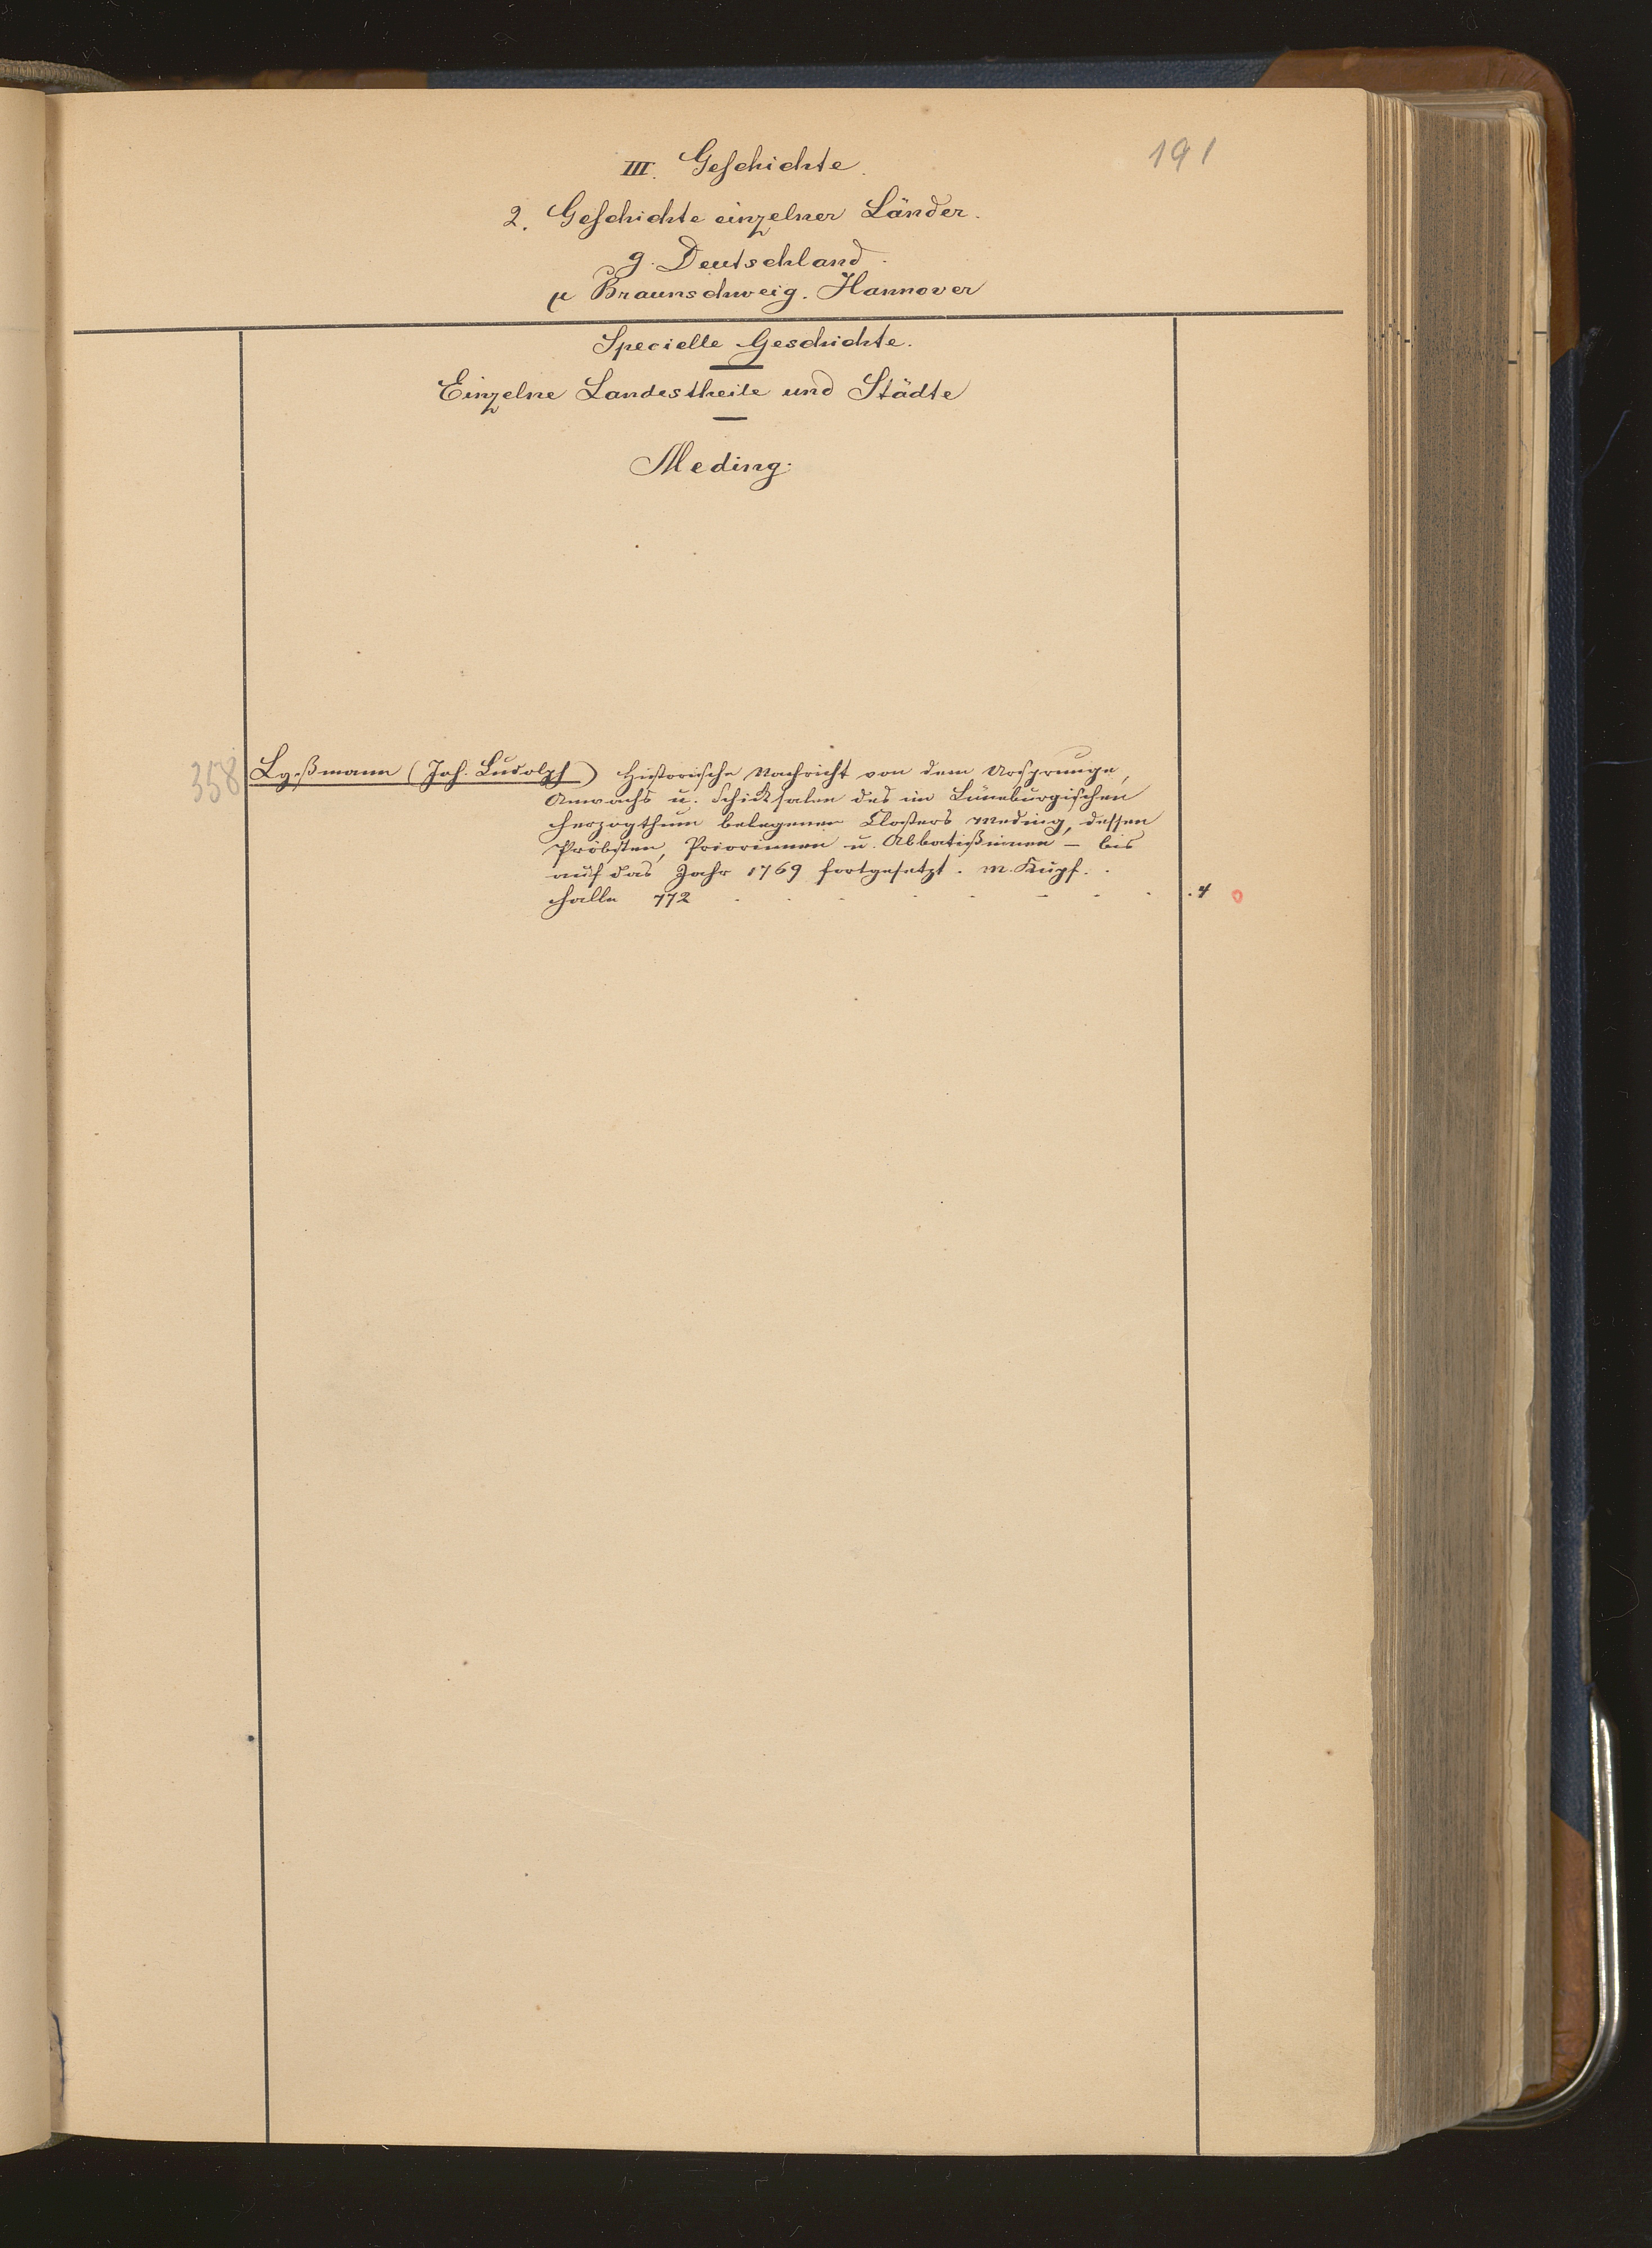 191
III. Geschichte.
2. Geschichte einzelner Länder.
g. Deutschland.
μ Braunschweig. Hannover
Specielle Geschichte.
Einzelne Landestheile und Städte
Meding.
358 Lyßmann (Joh. Ludolph) Historische Nachricht von dem Ursprunge,
Anwachs u. Schicksalen des im Lüneburgischen
Herzogthum belegenen Closters Meding, dessen
Pröbsten, Priorinnen u. Abbatißinnen – bis
auf das Jahr 1769 fortgesetzt. M. Kupf.
Halle 772 . . . . . . . . 4 0